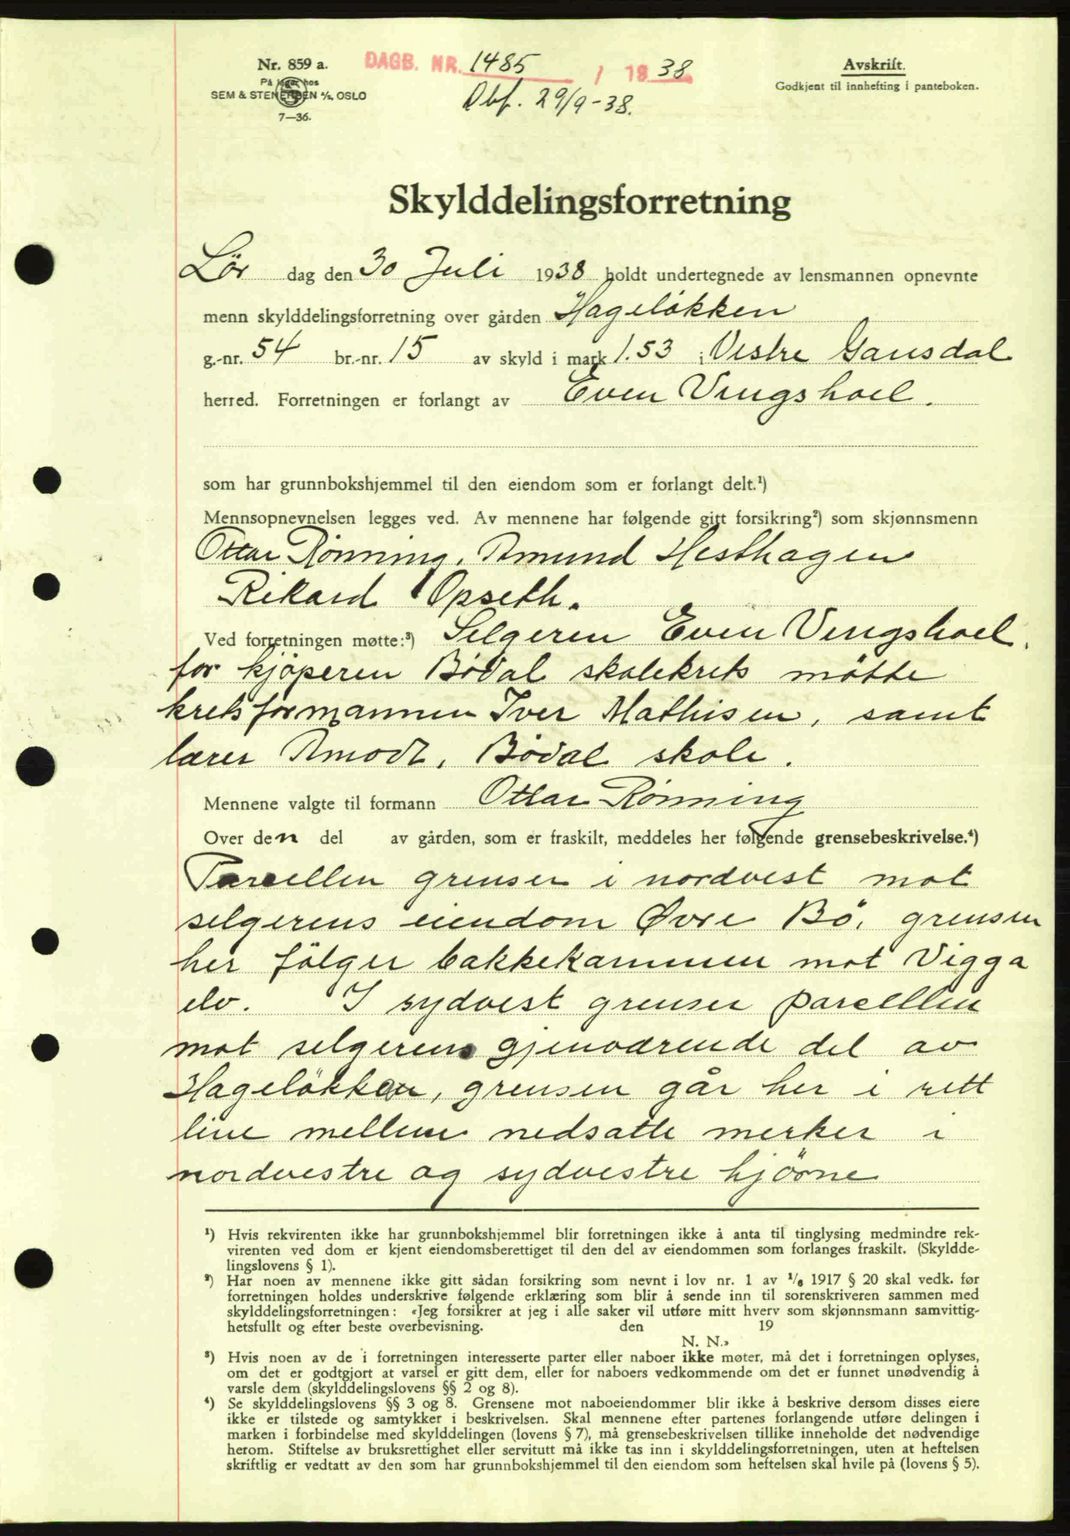 Nr. 859 a.
På lager hos
SEM & STENERSEN A/S, OSLO
7—36.
DAGB. NR. 1485 / 1938
Dbf. 29/9-38.
Avskrift.
Godkjent til innhefting i panteboken.
Skylddelingsforretning
Lör dag den 30 Juli 1938 holdt undertegnede av lensmannen opnevnte
menn skylddelingsforretning over gården Hageløkken
g.-nr. 54 br.-nr. 15 av skyld i mark 1.53 i Vestre Gausdal
herred. Forretningen er forlangt av Even Vingshoel.
som har grunnbokshjemmel til den eiendom som er forlangt delt.¹)
Mennsopnevnelsen legges ved. Av mennene har følgende gitt forsikring²) som skjønnsmenn
Ottar Rønning, Amund Hesthagen
Rikard Opseth.
Ved forretningen møtte:³) Selgeren Even Vingshoel.
for kjøperen Bødal skolekrets møtte
kretsformannen Iver Mathisen, samt
lærer Amodt, Bødal skole.
Mennene valgte til formann Ottar Rønning
Over den del av gården, som er fraskilt, meddeles her følgende grensebeskrivelse.⁴)
Parcellen grenser i nordvest mot
selgerens eiendom Øvre Bø, grensen
her følger bakkekammen mot Vigga
elv. I sydvest grenser parcellen
mot selgerens gjenværende del av
Hageløkken, grensen går her i rett
line mellem nedsatte merker i
nordvestre og sydvestre hjørne
¹) Hvis rekvirenten ikke har grunnbokshjemmel blir forretningen ikke å anta til tinglysing medmindre rek-
virenten ved dom er kjent eiendomsberettiget til den del av eiendommen som forlanges fraskilt. (Skyldde-
lingslovens § 1).
²) Har noen av mennene ikke gitt sådan forsikring som nevnt i lov nr. 1 av 1/6 1917 § 20 skal vedk. før
forretningen holdes underskrive følgende erklæring som blir å sende inn til sorenskriveren sammen med
skylddelingsforretningen: «Jeg forsikrer at jeg i alle saker vil utføre mitt hverv som skjønnsmann samvittig-
hetsfullt og efter beste overbevisning. den 19
N. N.»
³) Hvis noen av de i forretningen interesserte parter eller naboer ikke møter, må det i forretningen oplyses,
om det er godtgjort at varsel er gitt dem, eller for naboers vedkommende om det er funnet unødvendig å
varsle dem (skylddelingslovens §§ 2 og 8).
⁴) Se skylddelingslovens §§ 3 og 8. Grensene mot naboeiendommer blir ikke å beskrive dersom disses eiere
ikke er tilstede og samtykker i beskrivelsen. Skal mennene efter partenes forlangende utføre delingen i
marken i forbindelse med skylddelingen (lovens § 7), må grensebeskrivelsen tillike inneholde det nødvendige
herom. Stiftelse av bruksrettighet eller servitutt må ikke tas inn i skylddelingsforretningen, uten at heftelsen
skriftlig er vedtatt av den som har grunnbokshjemmel til den eiendom som heftelsen skal hvile på (lovens § 5).